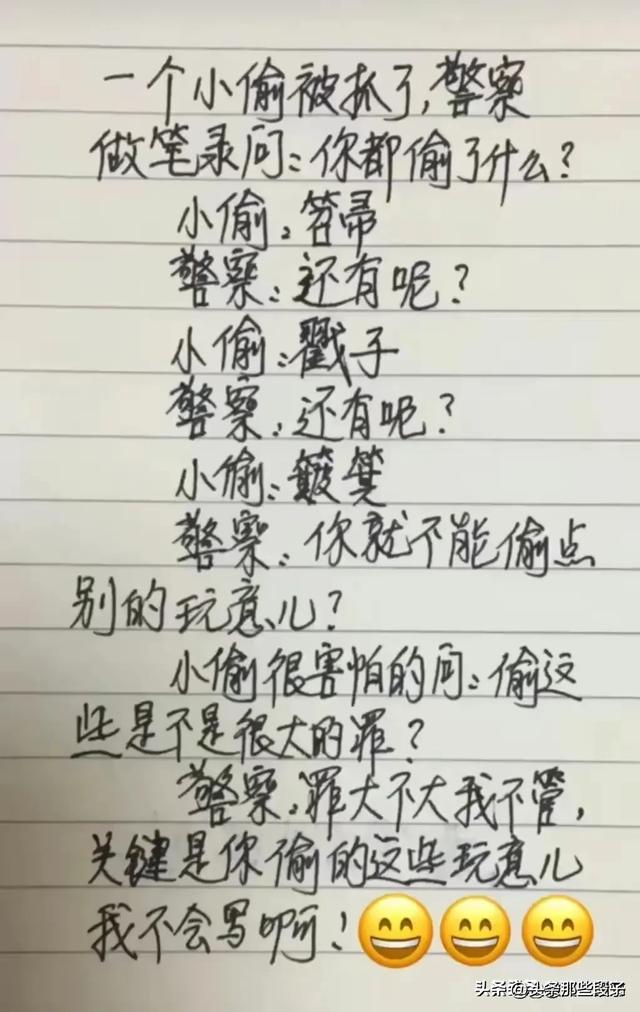 一个小偷被抓了,警察
做笔录问:你都偷了什么?
小偷:笤帚
警察:还有呢?
小偷:戳子
警察:还有呢?
小偷:簸箕
警察:你就不能偷点
别的玩意儿?
小偷很害怕的问:偷这
些是不是很大的罪?
警察:罪大不大我不管,
关键是你偷的这些玩意儿
我不会写啊!😄😄😄
头条@头条那些段子